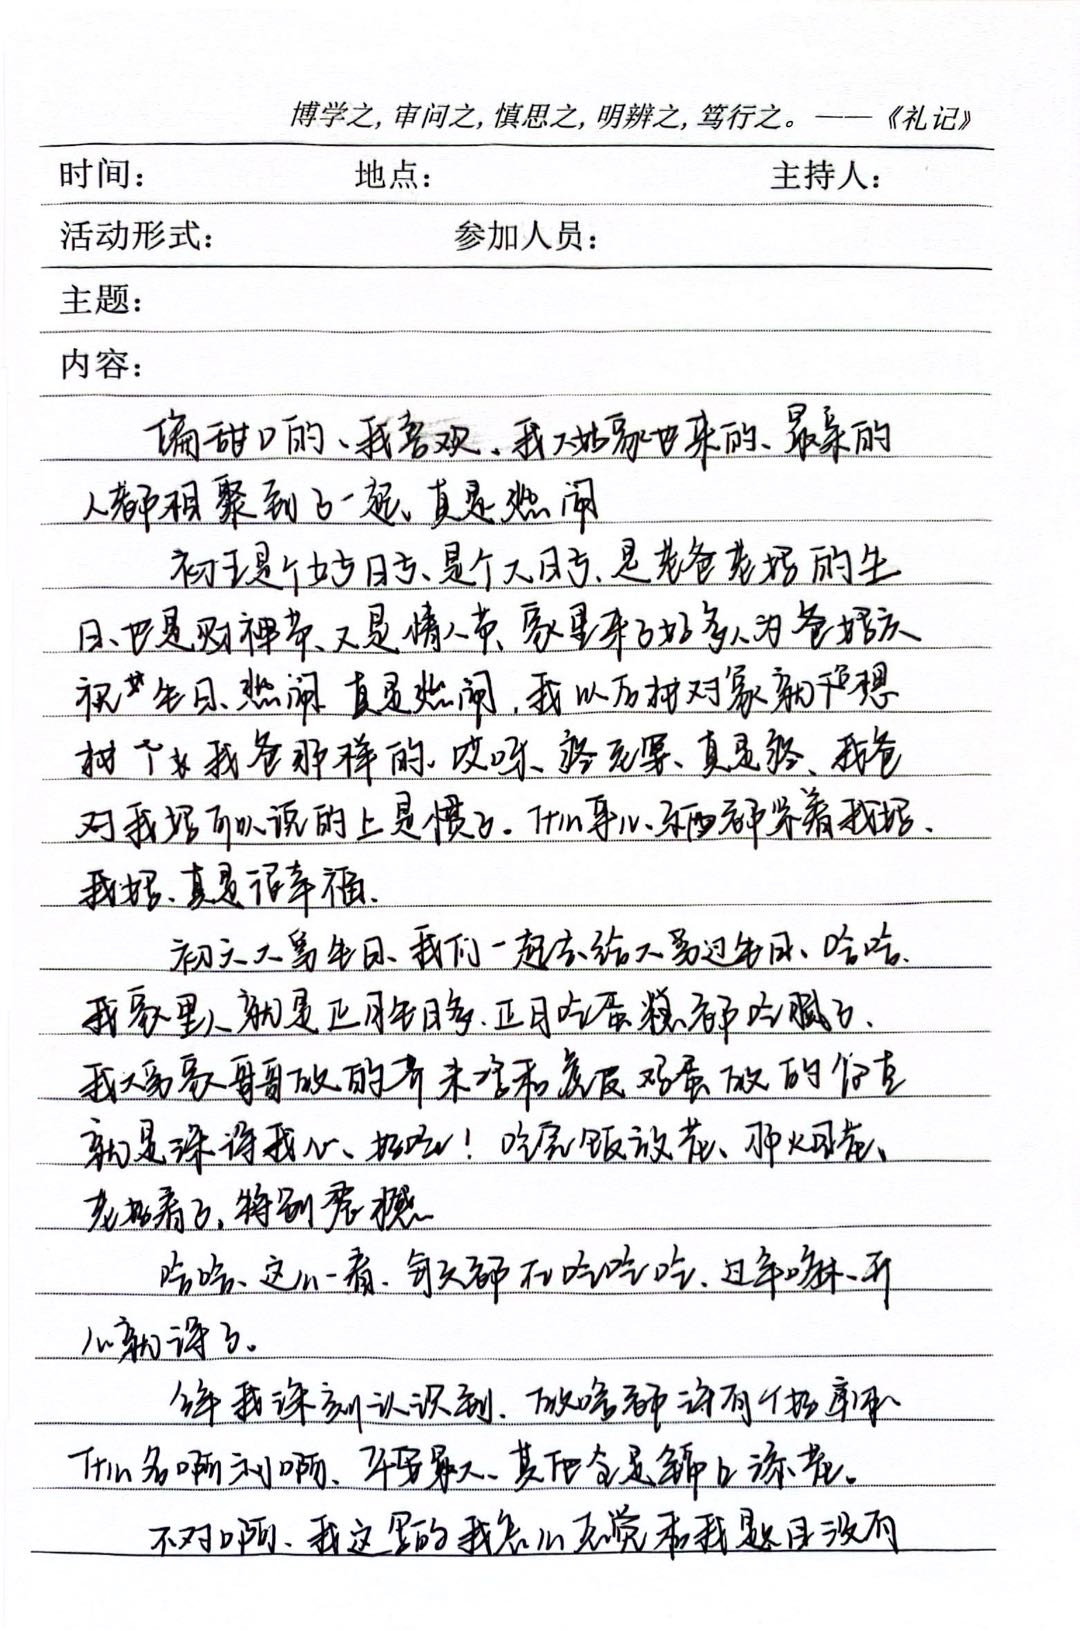 博学之，审问之，慎思之，明辨之，笃行之。——《礼记》
时间： 地点： 主持人：
活动形式： 参加人员：
主题：
内容：
偏甜口的、我喜欢。我大姑家也来的、最亲的
人都相聚到了一起、真是热闹
初五是个好日子、是个大日子、是老爸老妈的生
日、也是财神节、又是情人节、家里来了好多人为爸妈庆
祝生日、热闹 真是热闹，我以后找对象就想
找个我爸那样的、哎呀、真是、我爸
对我妈可以说的上是惯了。什么事儿、东西都紧着我妈、
我妈、真是很幸福、
初六大舅生日、我们一起去给大舅过生日、哈哈、
我家里人就是正月生日多、正月吃蛋糕都吃腻了、
我大舅家哥哥做的和虎皮鸡蛋做的简直
就是深得我心、好吃！吃完饭放花、那烟花、
老好看了，特别震撼
哈哈、这么一看、每天都在哈哈哈、过年嘛、开
心就得了。
今年我深刻认识到、做啥都得有个好身体
什么名啊利啊、平安最大、其他全是锦上添花。
不对啊、我这写的我怎么感觉和我题目没有